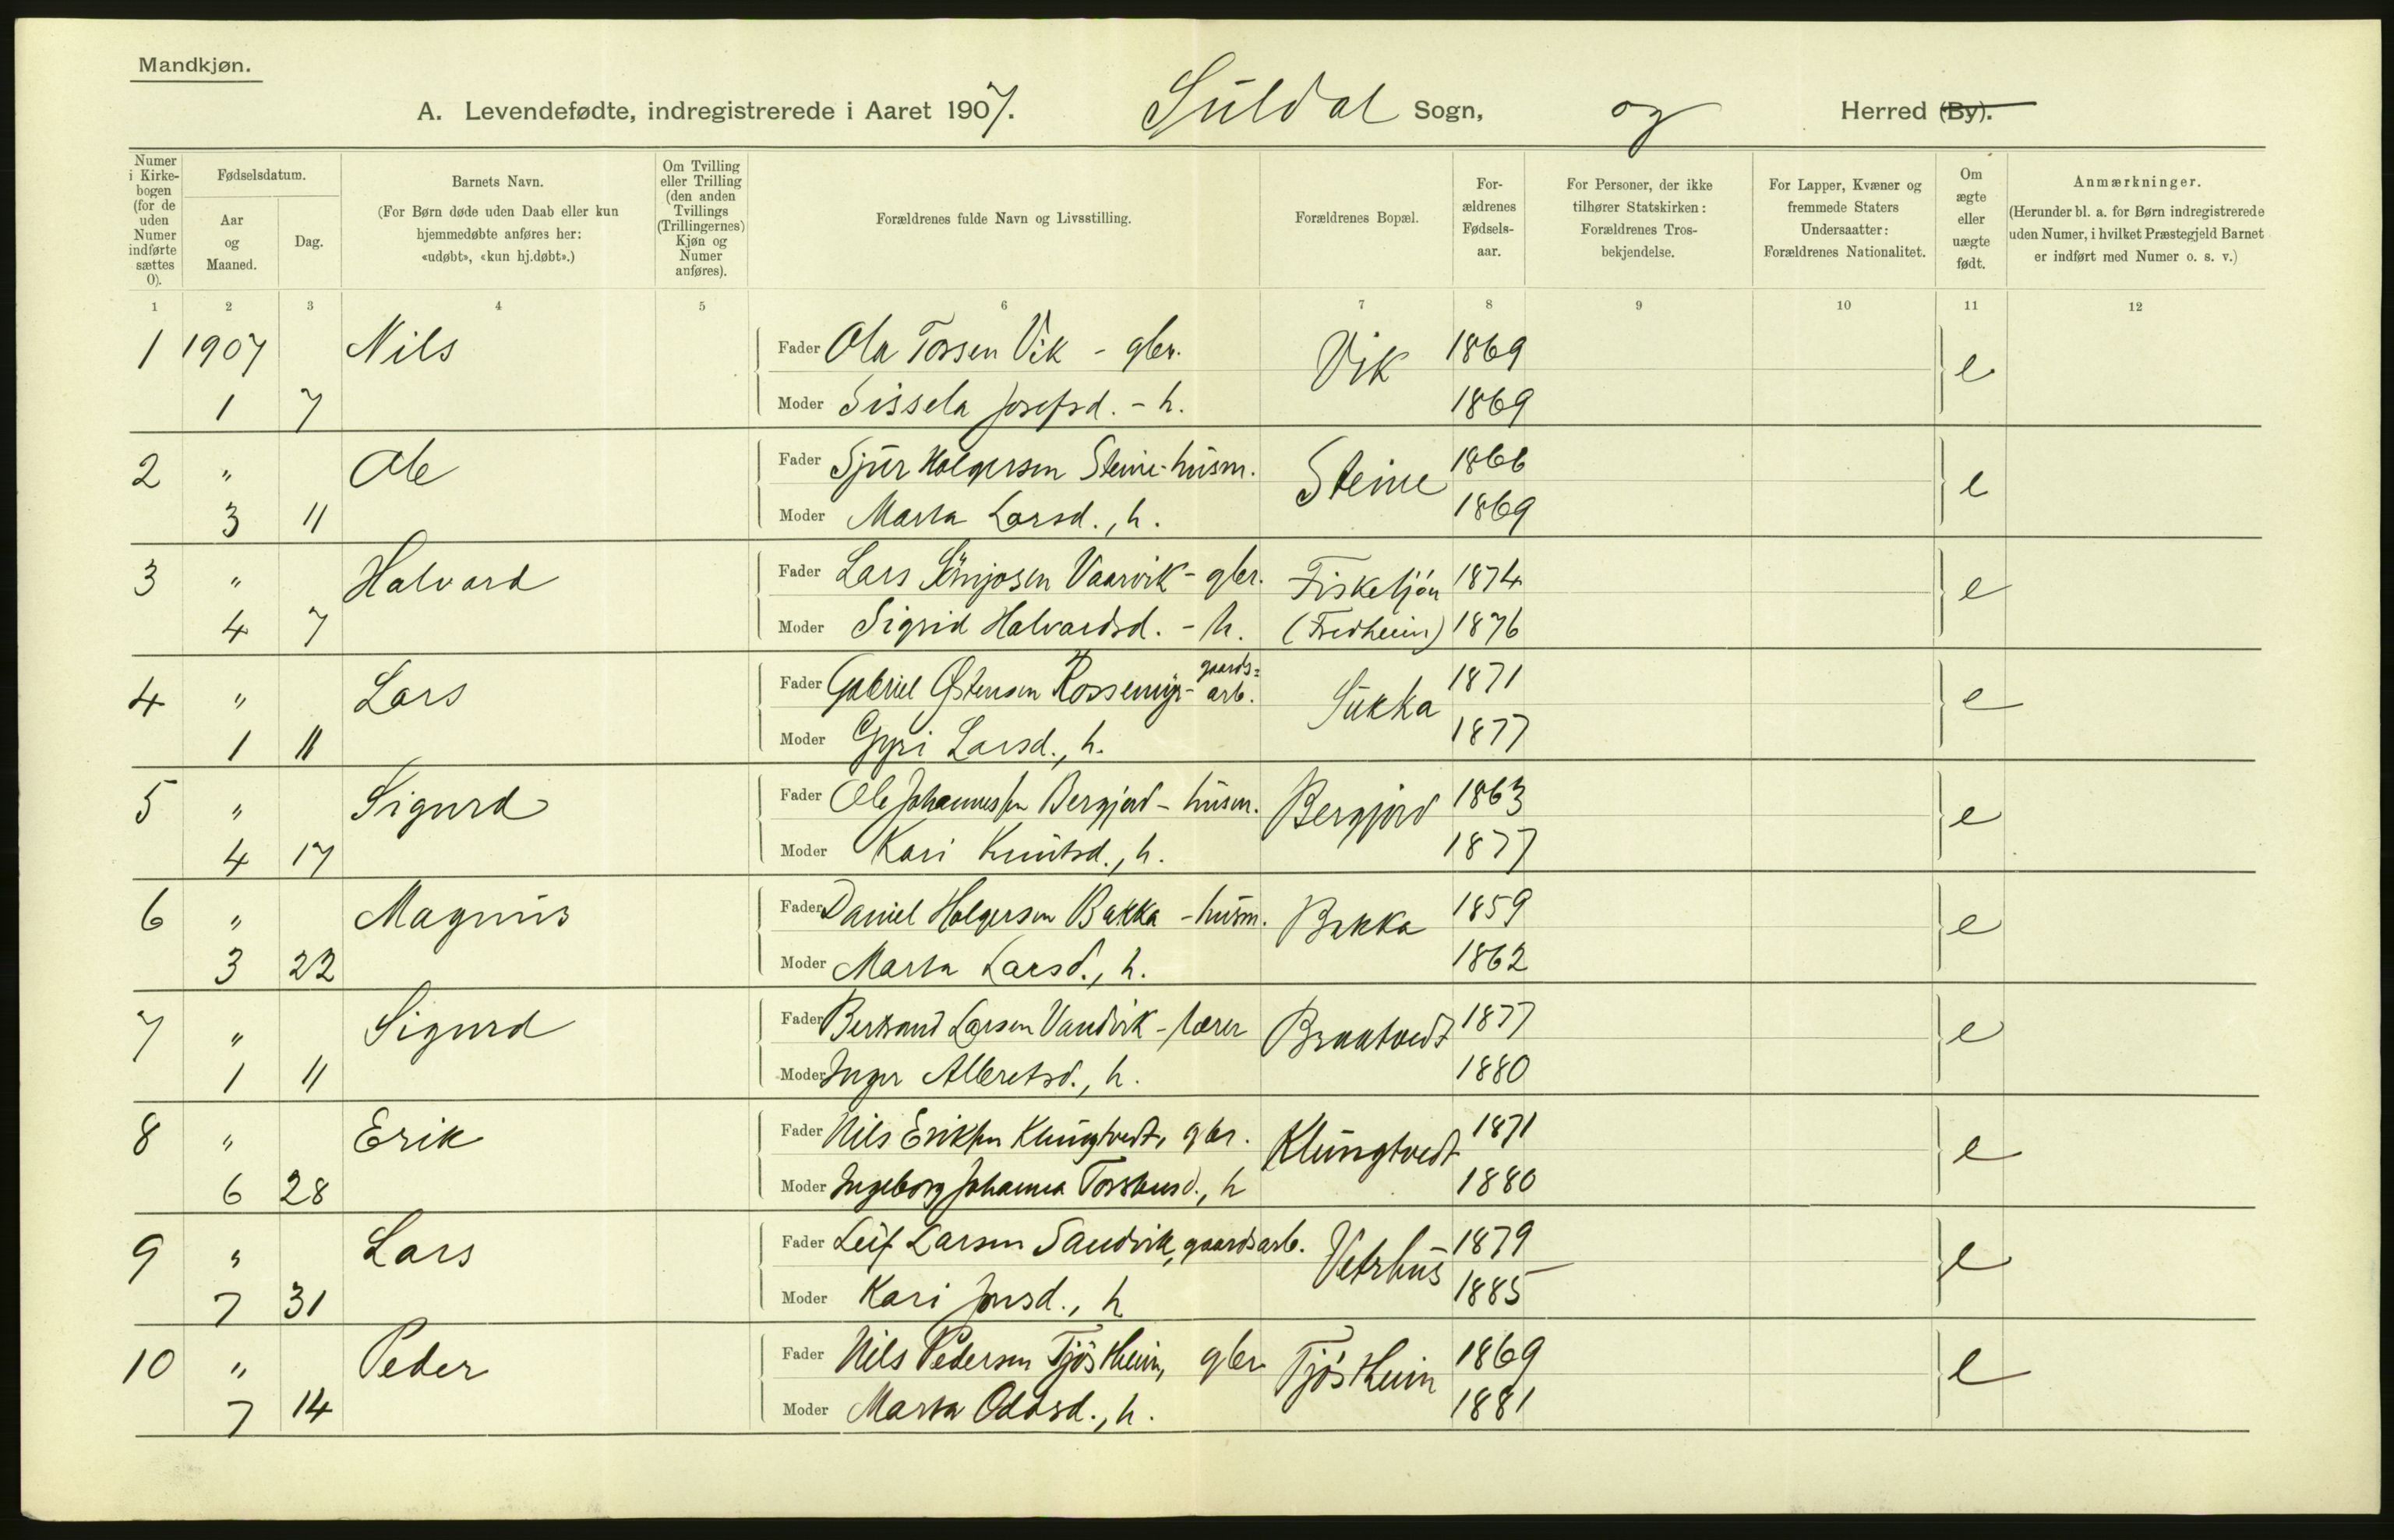 Mandkjøn.
A. Levendefødte, indregistrerede i Aaret 1907. Suldal Sogn, og Herred (By).
Numer i Kirke-bogen (for de uden Numer indførte sættes 0).
Fødselsdatum.
Aar og Maaned.
Dag.
Barnets Navn.
(For Børn døde uden Daab eller kun hjemmedøbte anføres her: «udøbt», «kun hj.døbt».)
Om Tvilling eller Trilling (den anden Tvillings (Trillingernes) Kjøn og Numer anføres).
Forældrenes fulde Navn og Livsstilling.
Forældrenes Bopæl.
For-ældrenes Fødsels-aar.
For Personer, der ikke tilhører Statskirken: Forældrenes Tros-bekjendelse.
For Lapper, Kvæner og fremmede Staters Undersaatter: Forældrenes Nationalitet.
Om ægte eller uægte født.
Anmærkninger.
(Herunder bl. a. for Børn indregistrerede uden Numer, i hvilket Præstegjeld Barnet er indført med Numer o. s. v.)
1 2 3 4 5 6 7 8 9 10 11 12
1 1907 Nils Fader Ola Torsen Vik - gbr. Vik 1869 e
1 7 Moder Sissela Josefsd. - h. 1869
2 " Ole Fader Sjur Holgersen Steine - husm. Steine 1866 e
3 11 Moder Marta Larsd., h. 1869
3 " Halvard Fader Lars Vaarvik - gbr. Fisketjön 1874 e
4 7 Moder Sigrid Halvardsd. - h. (Fredheim) 1876
4 " Lars Fader Gabriel Østensen Rossemyr - gaards= arb. Sukka 1871 e
1 11 Moder Gyri Larsd., h. 1877
5 " Sigurd Fader Ole Johannessen Bergjord - husm. Bergjord 1863 e
4 17 Moder Kari Knutsd., h. 1877
6 " Magnus Fader Daniel Holgersen Bakka - husm. Bakka 1859 e
3 22 Moder Marta Larsd., h. 1862
7 " Sigurd Fader Bertrand Larsen Vandvik - lærer Braatvedt 1877 e
1 11 Moder Inger Albretsd., h. 1880
8 " Erik Fader Nils Eriksen Klungtvedt, gbr. Klungtvedt 1871 e
6 28 Moder Ingeborg Johanna Torstensd., h 1880
9 " Lars Fader Leif Larsen Sandvik, gaardsarb. Vetrhus 1879 e
7 31 Moder Kari Jonsd., h 1885
10 " Peder Fader Nils Pedersen Tjöstheim, gbr Tjöstheim 1869 e
7 14 Moder Marta Oddsd., h. 1881